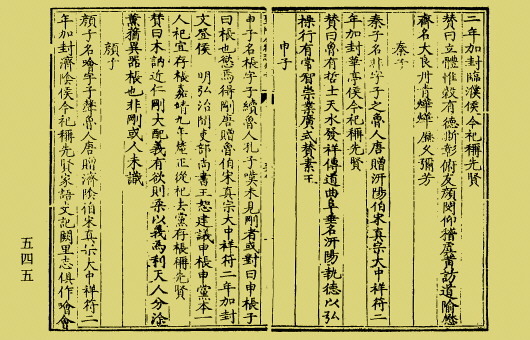 二年加封臨濮侯今祀稱先賢
贊曰立體惟穀有德斯彰俯友顏閔仰稽虞訪道喻愍
齊名大良丹青彌芳
秦子
秦子名非字子之魯人唐贈汧陽伯宋真宗大中祥符二
年加封華亭侯今祀稱先賢
贊曰魯有哲士天水發祥傳道曲阜垂名汧陽執德以弘
操行有常崇業廣式贊素王
申子
申子名棖字子續魯人孔子嘆未見剛者或對曰申棖子
曰棖也慾焉得剛唐贈魯伯宋真宗大中祥符二年加封
文登侯 明弘治間吏部尚書王恕建議申棖申黨本一
人祀宜存棖嘉靖九年釐正從祀去黨存棖稱先賢
贊曰木訥近仁剛大配義有欲則柔以義為利天人分途
薰蕕異器棖也非剛或人未識
顏子
顏子名噲字子聲魯人唐贈濟陰伯宋真宗大中祥符二
年加封濟陰侯今祀稱先賢家語文記闕里志俱作噲會
五四五